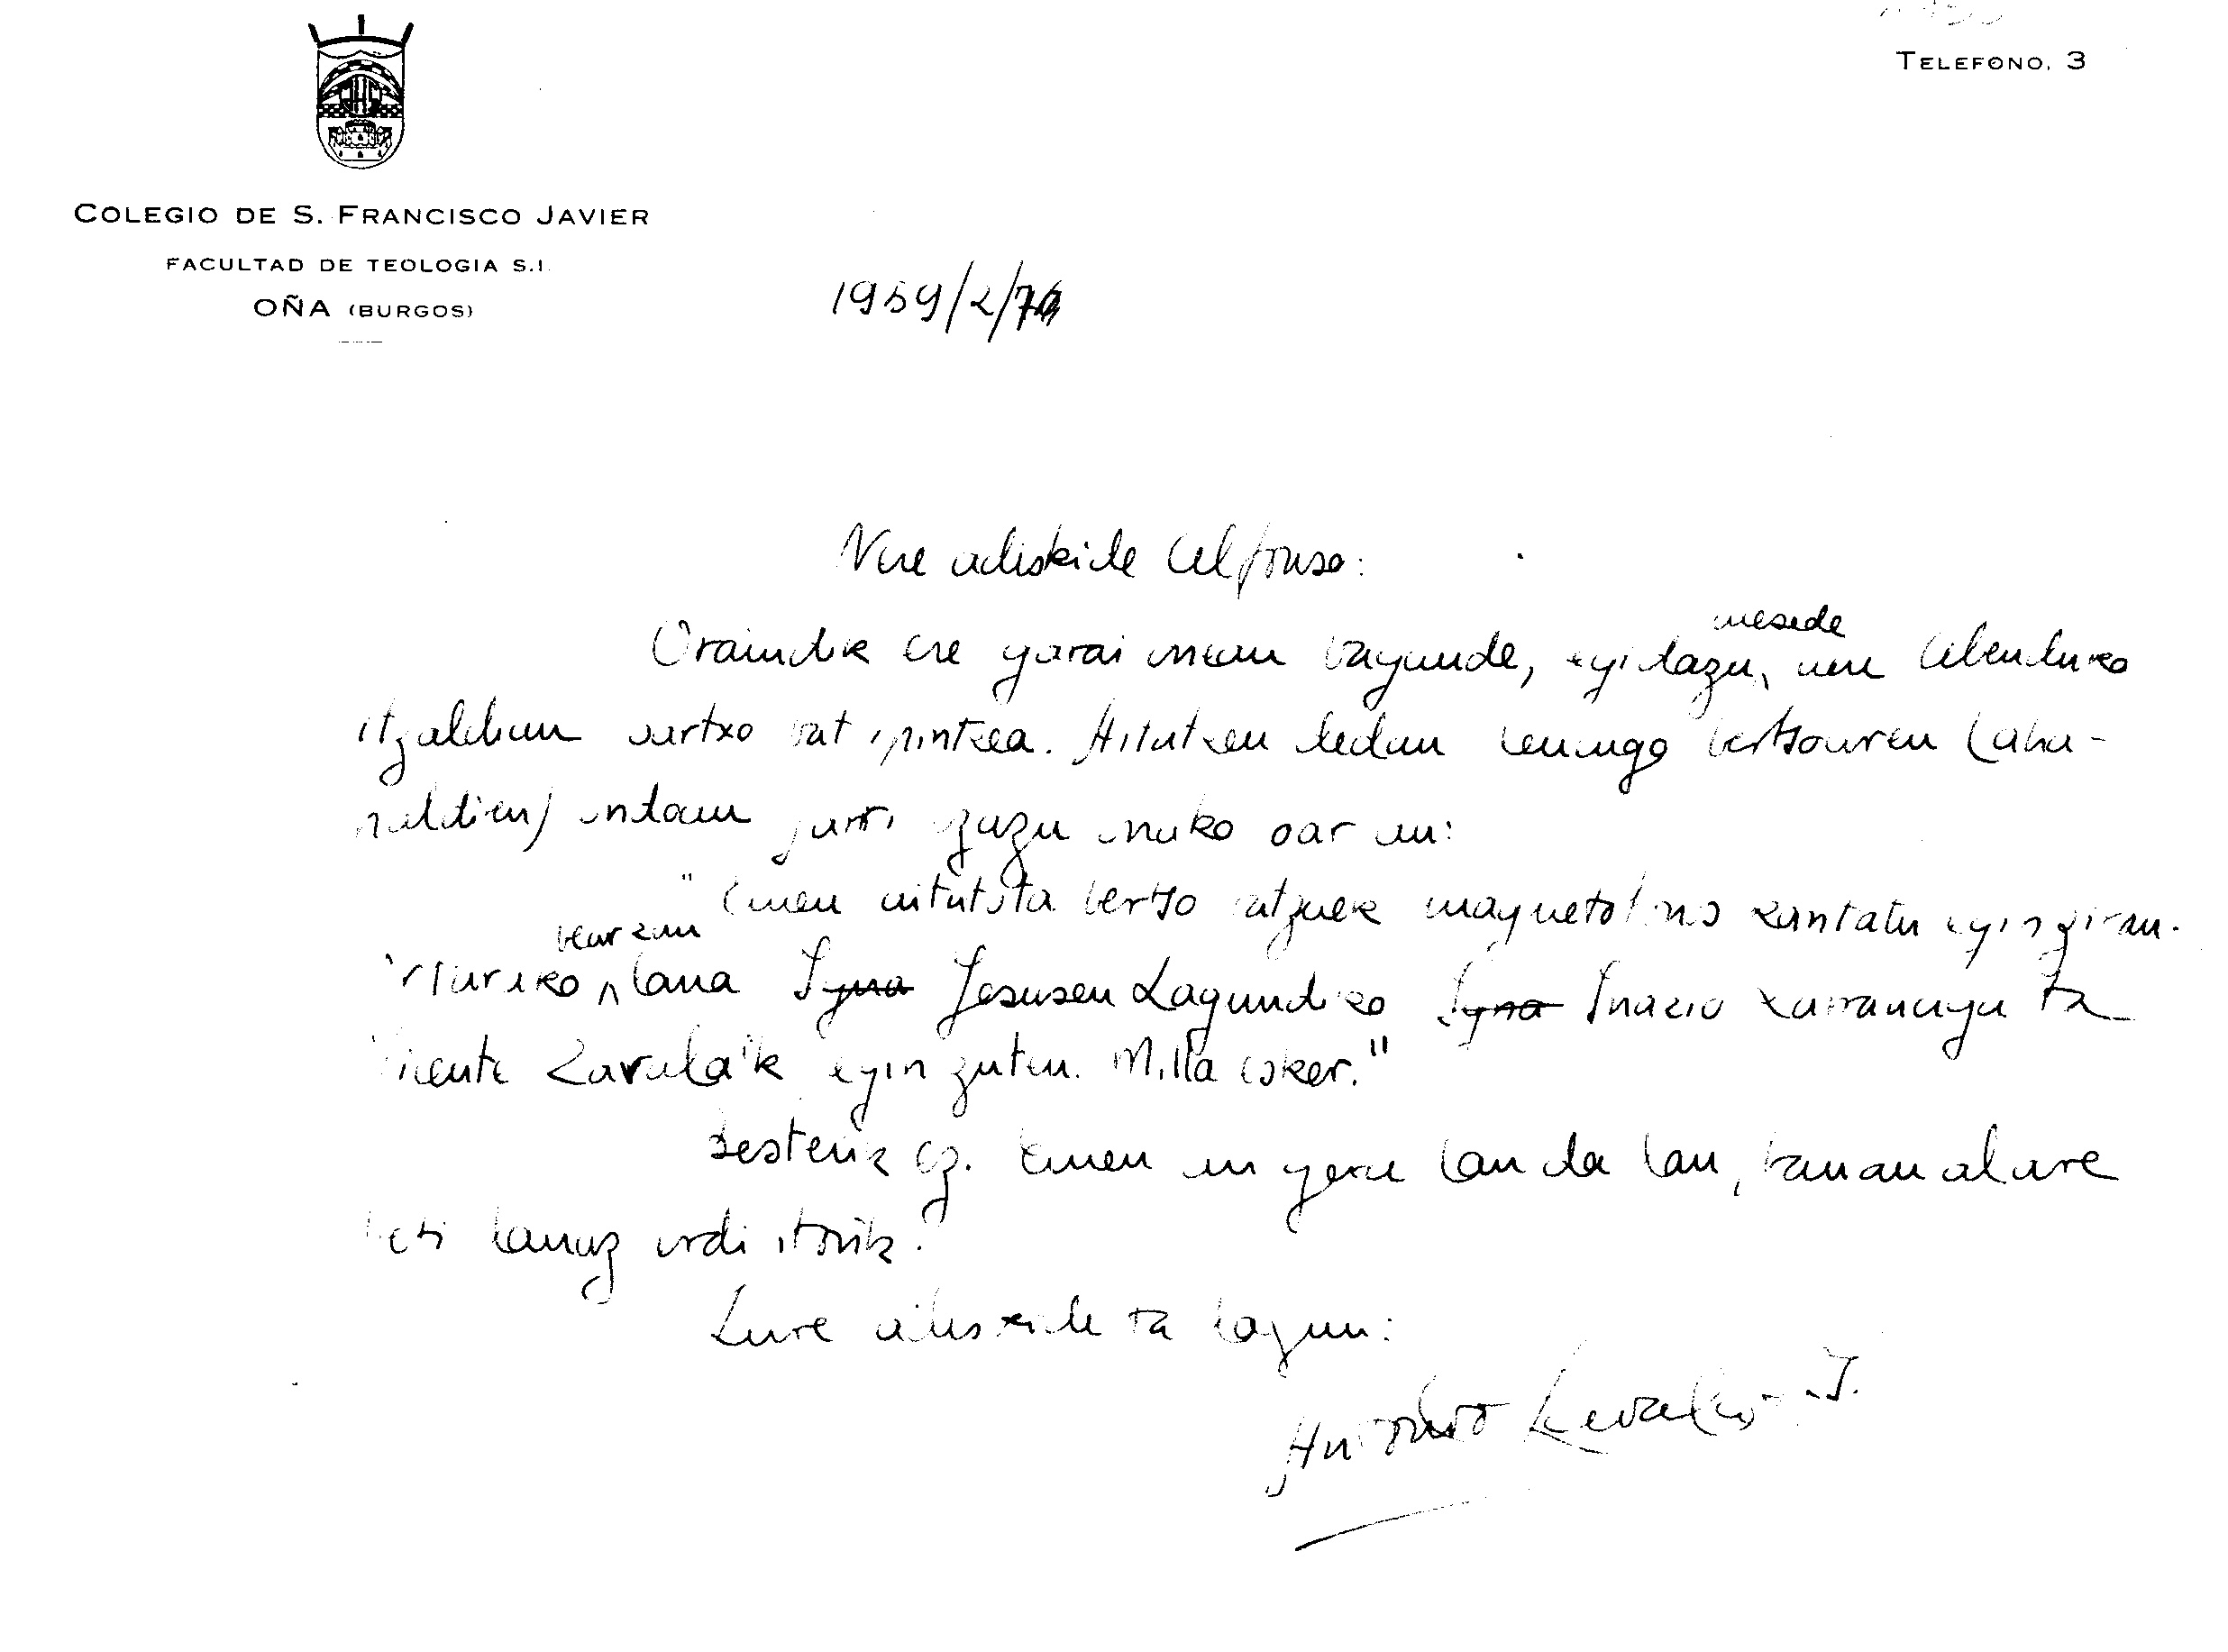 TELEFONO, 3
COLEGIO DE S. FRANCISCO JAVIER
FACULTAD DE TEOLOGIA S.I.
OÑA (BURGOS)
1959/2/
Nere adiskide Alfonso:
Oraindik ere garai onean bagaude, egidazu, mesede nere Abenduko
itzaldian oartxo bat ipintzea. Aitatzen dedan lenengo bertsoaren (aha-
naldien) ondoan jarri zazu onako oar au:
"Emen aitatuta bertso batzuek magnetofonoz kantatu egin ziran.
Ortarako bear zan lana Igna Jesusen Lagundiko Igna Inazio Larrañaga ta
Vicente Zavala'k egin zuten. Milla esker."
Besterik ez. Emen ere gera lan da lan, bañan alare
beti lanaz erdi itorik.
Zure adiskide ta lagun:
Antonio Zavala, S.J.